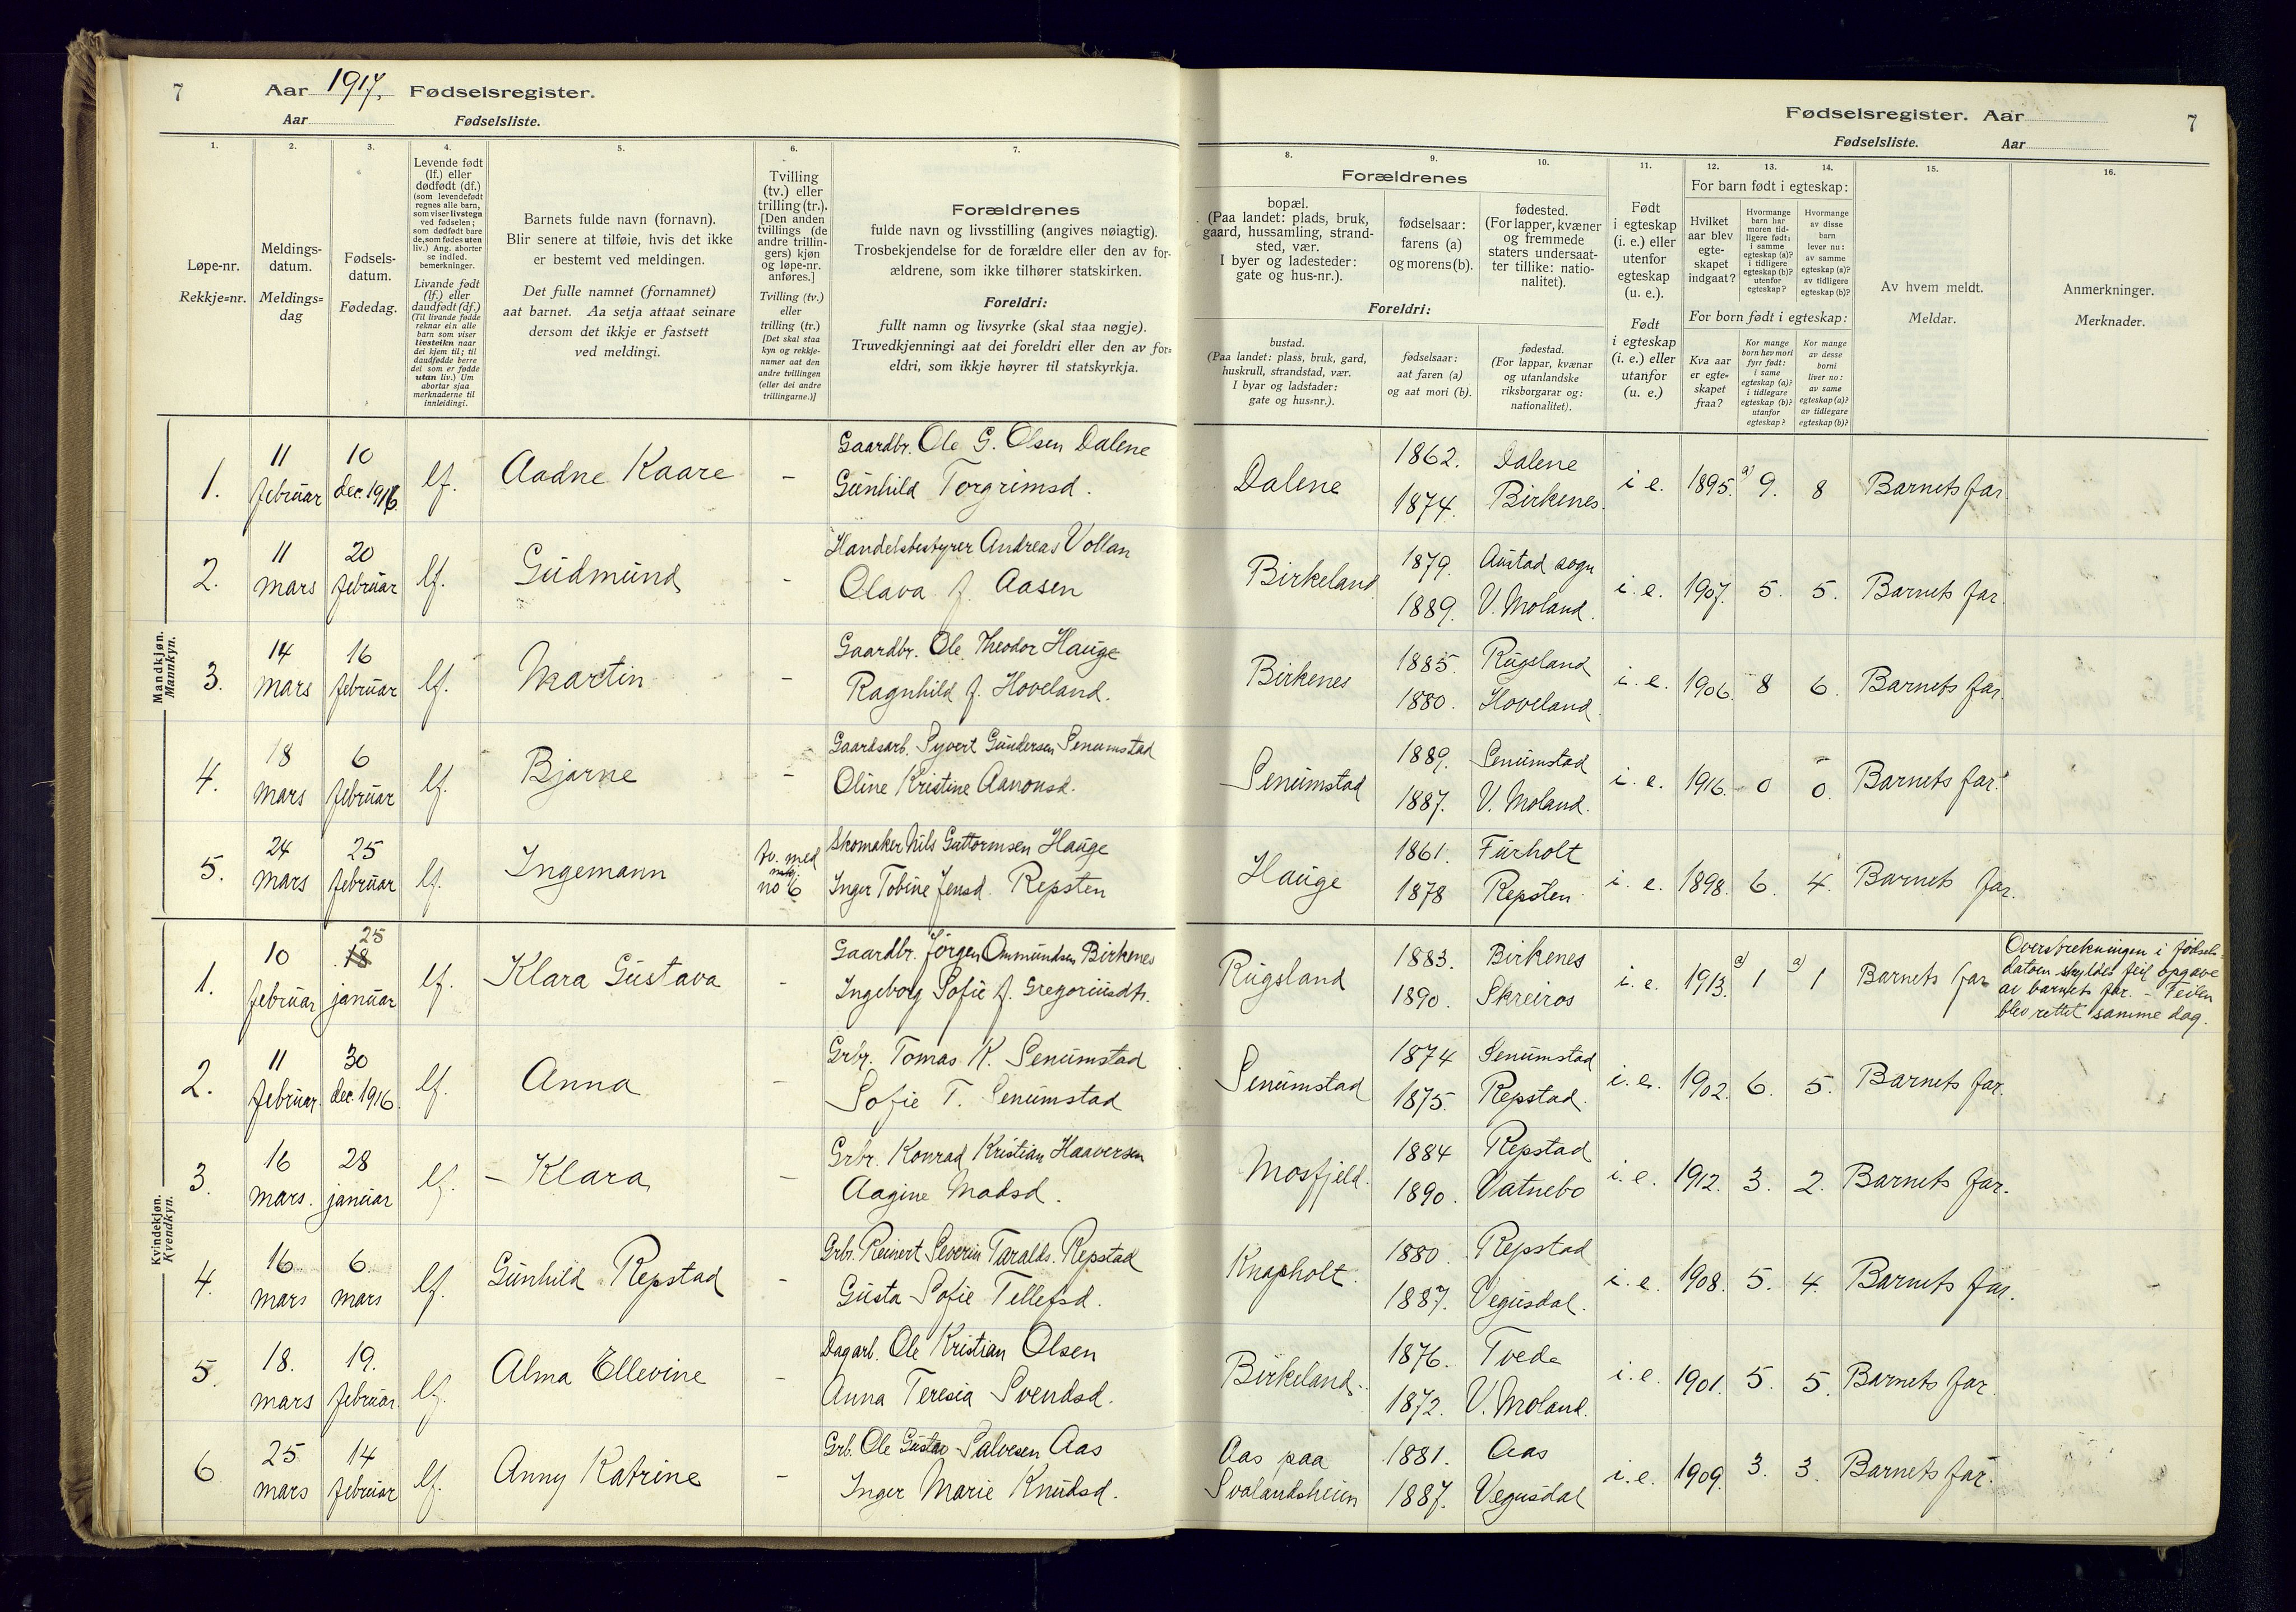 7 Aar 1917. Fødselsregister.
Aar Fødselsliste.
Fødselsregister. Aar 7
Fødselsliste. Aar
1. 2. 3. 4. 5. 6. 7.
Løpe-nr.
Rekkje=nr.
Meldings-
datum.
Meldings=
dag
Fødsels-
datum.
Fødedag.
Levende født
(lf.) eller
dødfødt (df.)
(som levendefødt
regnes alle barn,
som viser livstegn
ved fødselen;
som dødfødt bare
de, som fødes uten
liv.) Ang. aborter
se indled.
bemerkninger.
Livande født
(lf.) eller
daudfødt (df.)
(Til livande fødde
reknar ein alle
born som viser
livsteikn naar
dei kjem til; til
daudfødde berre
dei som er fødde
utan liv.) Um
abortar sjaa
merknaderne til
innleidingi.
Barnets fulde navn (fornavn).
Blir senere at tilføie, hvis det ikke
er bestemt ved meldingen.
Det fulle namnet (fornamnet)
aat barnet. Aa setja attaat seinare
dersom det ikkje er fastsett
ved meldingi.
Tvilling
(tv.) eller
trilling (tr.).
[Den anden
tvillings (de
andre trillin-
gers) kjøn
og løpe-nr.
anføres.]
Tvilling (tv.)
eller
trilling (tr.)
[Det skal staa
kyn og rekkje-
numer aat den
andre tvillingen
(eller dei andre
trillingarne.)]
Forældrenes
fulde navn og livsstilling (angives nøiagtig).
Trosbekjendelse for de forældre eller den av for-
ældrene, som ikke tilhører statskirken.
Foreldri:
fullt namn og livsyrke (skal staa nøgje).
Truvedkjenningi aat dei foreldri eller den av for=
eldri, som ikkje høyrer til statskyrkja.
8. 9. 10. 11. 12. 13. 14. 15. 16.
Forældrenes
bopæl.
(Paa landet: plads, bruk,
gaard, hussamling, strand-
sted, vær.
I byer og ladesteder:
gate og hus-nr.).
fødselsaar:
farens (a)
og morens (b).
fødested.
(For lapper, kvæner
og fremmede
staters undersaat-
ter tillike: natio-
nalitet).
Foreldri:
bustad.
(Paa landet: plass, bruk, gard,
huskrull, strandstad, vær.
I byar og ladstader:
gate og hus=nr.).
fødselsaar:
aat faren (a)
og aat mori (b).
fødestad.
(For lappar, kvænar
og utanlandske
riksborgarar og:
nationalitet).
Født
i egteskap
(i. e.) eller
utenfor
egteskap
(u. e.).
Født
i egteskap
(i. e.) eller
utanfor
(u. e.)
For barn født i egteskap:
Hvilket
aar blev
egte-
skapet
indgaat?
Hvormange
barn har
moren tid-
ligere født:
i samme
egteskap (a)?
i tidligere
egteskap (b)?
utenfor
egteskap?
Hvormange
av disse
barn
lever nu:
av samme
egteskap (a)?
av tidligere
egteskap (b)?
For born født i egteskap:
Kva aar
er egte=
skapet
fraa?
Kor mange
born hev mori
fyrr født:
i same
egteskap (a)?
i tidlegare
egteskap (b)?
utanfor
egteskap?
Kor mange
av desse
borni
liver no:
av same
egteskap (a)?
av tidlegare
egteskap (b)?
Av hvem meldt.
Meldar.
Anmerkninger.
Merknader.
Mandkjøn.
Mannkyn.
1. 11 februar 10 dec. 1916 lf. Aadne Kaare - Gaardbr. Ole G. Olsen Dalene
Gunhild Torgrimsd.
Dalene 1862. Dalene i e. 1895. a) 9. 8 Barnets far
1874. Birkenes.
2. 11 mars 20 februar lf. Gudmund - Handelsbestyrer Andreas Vollan
Olava f. Aasen
Birkeland 1879. Austad sogn i. e. 1907. 5. 5. Barnets far.
1889. V. Moland.
3. 14 mars 16 februar lf. Martin - Gaardbr. Ole Theodor Hauge
Ragnhild f. Hoveland.
Birkenes 1885. Rugsland i. e. 1906. 8 6. Barnets far.
1880. Hoveland.
4. 18 mars 6 februar lf. Bjarne - Gaardsarb. Syvert Gundersen Senumstad
Oline Kristine Aanonsd.
Senumstad 1889. Senumstad i. e. 1916. 0 0. Barnets far.
1887. V. Moland.
5. 24 mars 25 februar lf. Ingemann tv. med no 6 Skomaker Nils Guttormsen Hauge
Inger Tobine Jensd. Repsten
Hauge 1861. Furholt i. e. 1898. 6. 4. Barnets far.
1878 Repsten
Kvindekjøn.
Kvendkyn.
1. 10 februar 18 25 januar lf. Klara Gustava - Gaardbr. Jørgen Ommundsen Birkenes
Ingeborg Sofie f. Gregoriusdtr.
Rugsland 1883. Birkenes i. e. 1913. a) 1 a) 1 Barnets far
1890. Skreiros
Overstrekningen i fødsels-
datoen skyldes feil opgave
av barnets far. - Feilen
blev rettet samme dag.
2. 11 februar 30 dec. 1916 lf. Anna - Grbr. Tomas K. Senumstad
Sofie T. Senumstad
Senumstad 1874 Senumstad i. e. 1902. 6. 5. Barnets far.
1875. Repstad.
3. 16 mars. 28 januar lf. - Klara - Grbr. Konrad Kristian Haaversen
Aagine Madsd.
Mosfjeld. 1884 Repstad i. e. 1912. 3. 2. Barnets far.
1890. Vatnebo
4. 16 mars 6. mars lf. Gunhild Repstad - Grbr. Reinert Severin Taralds. Repstad
Gusta Sofie Tellefsd.
Knapholt. 1880. Repstad i. e. 1908. 5. 4. Barnets far.
1887. Vegusdal.
5. 18. mars 19. februar. lf. Alma Ellevine - Dagarb. Ole Kristian Olsen
Anna Teresia Svendsd.
Birkeland. 1876. Tvede i. e. 1901. 5. 5. Barnets far.
1872. V. Moland.
6 25 mars 14 februar lf. Anny Katrine - Grb. Ole Gustav Salvesen Aas
Inger Marie Knudsd.
Aas paa 1881. Aas i. e. 1909. 3. 3. Barnets far.
Svalandsheien 1887. Vegusdal